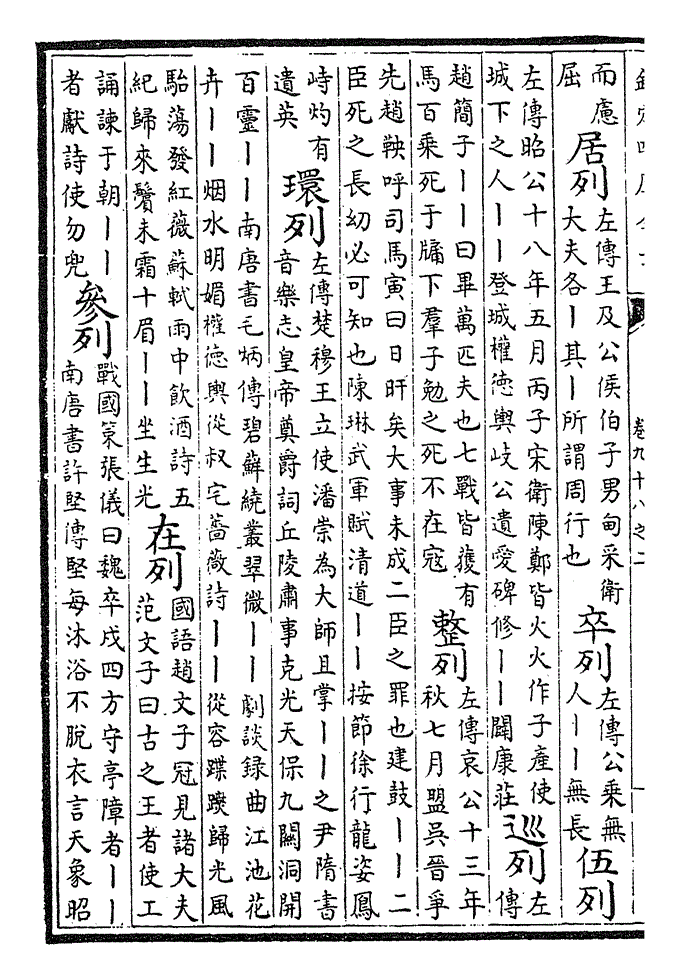 欽定四庫全書
卷九十八之二
而慮
屈
居列
左傳王及公侯伯子男甸采衛
大夫各丨其丨所謂周行也
卒列
左傳公乘無
人丨丨無長
伍列
左傳昭公十八年五月丙子宋衛陳鄭皆火火作子產使
城下之人丨丨登城權徳輿岐公遺愛碑修丨丨闢康莊
巡列
左
傳
趙簡子丨丨曰畢萬匹夫也七戰皆獲有
馬百乘死于牖下羣子勉之死不在寇
整列
左傳哀公十三年
秋七月盟吳晉爭
先趙鞅呼司馬寅曰日旰矣大事未成二臣之罪也建鼓丨丨二
臣死之長幼必可知也陳琳武軍賦清道丨丨按節徐行龍姿鳳
峙灼有
遺英
環列
左傳楚穆王立使潘崇為大師且掌丨丨之尹隋書
音樂志皇帝奠爵詞丘陵肅事克光天保九闗洞開
百靈丨丨南唐書毛炳傳碧蘚繞叢翠微丨丨劇談録曲江池花
卉丨丨烟水明媚權徳輿從叔宅薔薇詩丨丨從容蹀躞歸光風
駘蕩發紅薇蘇軾雨中飲酒詩五
紀歸來鬢未霜十眉丨丨坐生光
在列
國語趙文子冠見諸大夫
范文子曰古之王者使工
誦諫于朝丨丨
者獻詩使勿兜
參列
戰國策張儀曰魏卒戍四方守亭障者丨丨
南唐書許堅傳堅每沐浴不脫衣言天象昭